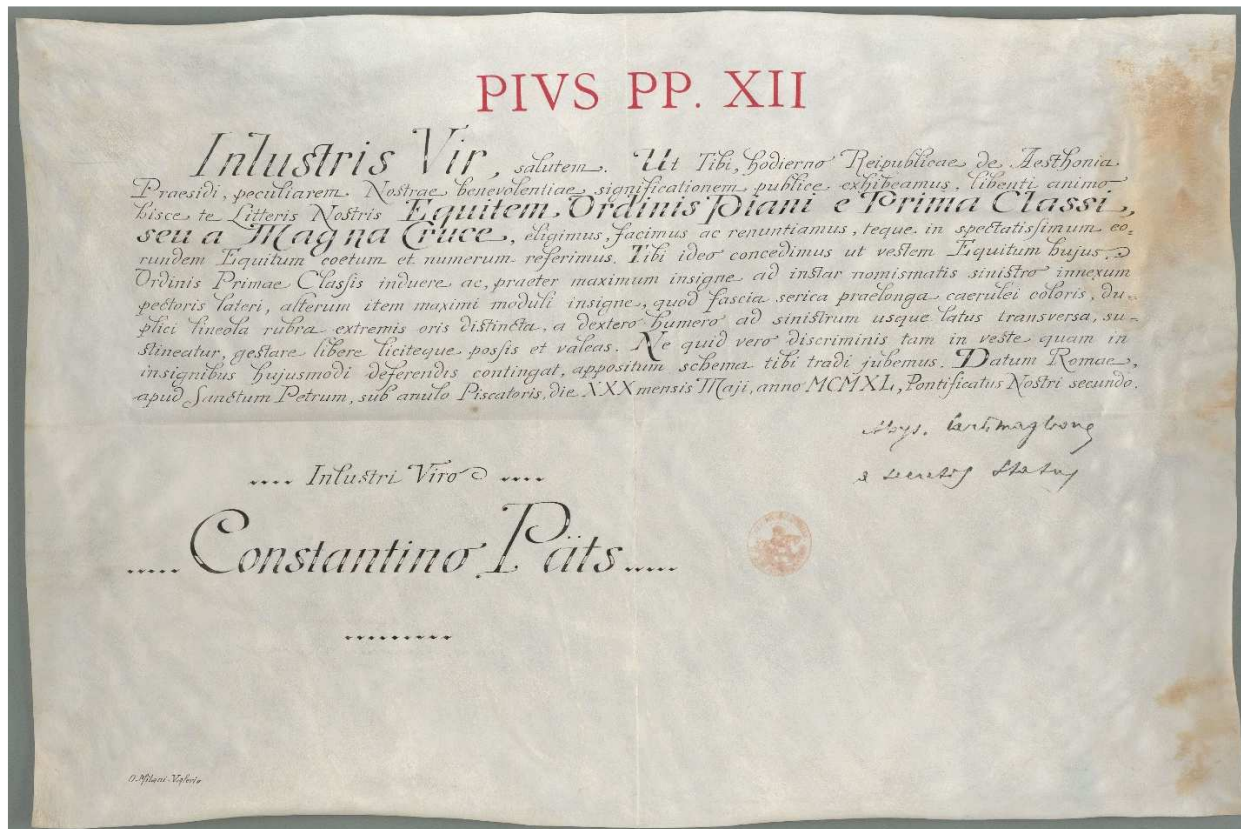 PIVS PP. XII
Inlustris Vir, salutem. Ut Tibi, hodierno Reipublicae de Aesthonia
Praesidi, peculiarem Nostrae benevolentiae significationem publice exhibeamus, libenti animo
hisce te Litteris Nostris Equitem Ordinis Piani e Prima Classi,
seu a Magna Cruce, eligimus, facimus ac renuntiamus, teque in spectatissimum eo=
rundem Equitum coetum et numerum referimus. Tibi ideo concedimus ut vestem Equitum hujus
Ordinis Primae Classis induere ac, praeter maximum insigne ad instar nomismatis sinistro innexum
pectoris lateri, alterum item maximi moduli insigne, quod fascia serica praelonga caerulei coloris, du=
plici lineola rubra extremis oris distincta, a dextero humero ad sinistrum usque latus transversa, su=
stineatur, gestare libere liciteque possis et valeas. Ne quid vero discriminis tam in veste quam in
insignibus hujusmodi deferendis contingat, appositum schema tibi tradi jubemus. Datum Romae,
apud Sanctum Petrum, sub anulo Piscatoris, die XXX mensis Maji, anno MCMXL, Pontificatus Nostri secundo.
Aloys. Card. Maglione
a secretis Status
Inlustri Viro
Constantino Päts